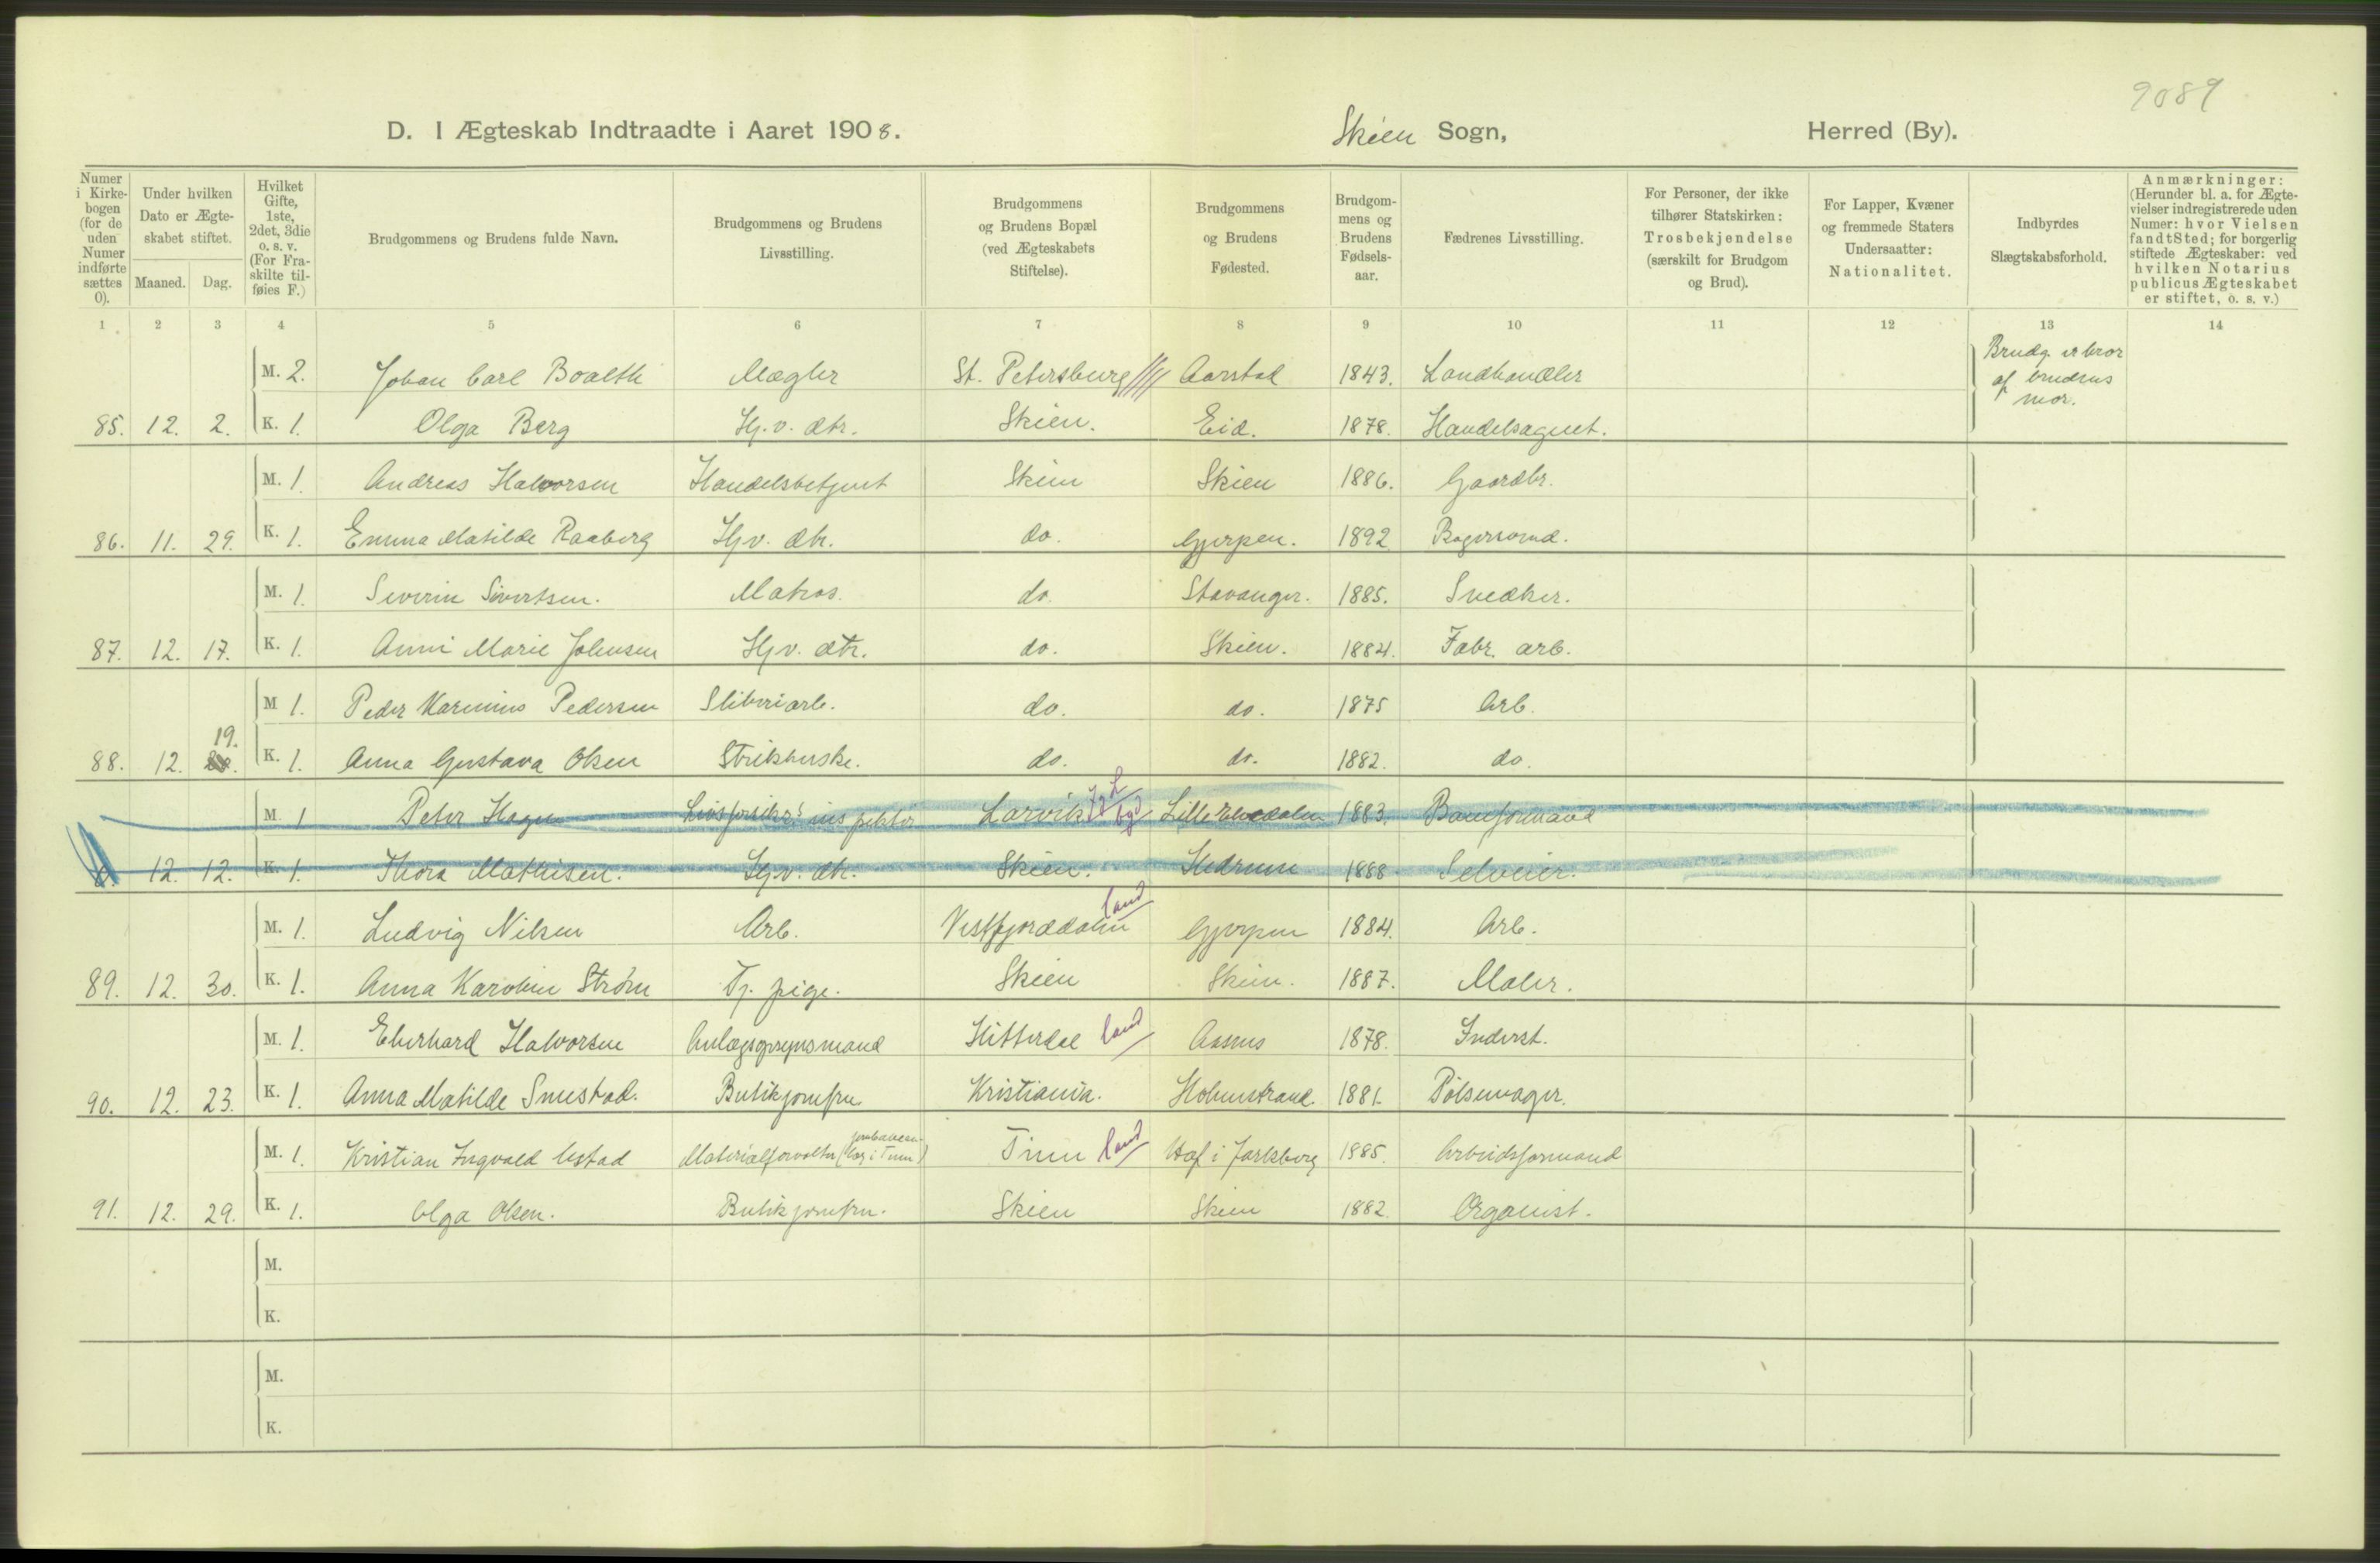 9089
D. I Ægteskab Indtraadte i Aaret 1908. Skien Sogn, Herred (By).
Numer i Kirke-bogen (for de uden Numer indførte sættes 0).
Under hvilken Dato er Ægte-skabet stiftet.
Maaned. Dag.
Hvilket Gifte, 1ste, 2det, 3die o. s. v. (For Fra-skilte til-føies F.)
Brudgommens og Brudens fulde Navn.
Brudgommens og Brudens Livsstilling.
Brudgommens og Brudens Bopæl (ved Ægteskabets Stiftelse).
Brudgommens og Brudens Fødested.
Brudgom-mens og Brudens Fødsels-aar.
Fædrenes Livsstilling.
For Personer, der ikke tilhører Statskirken: Trosbekjendelse (særskilt for Brudgom og Brud).
For Lapper, Kvæner og fremmede Staters Undersaatter: Nationalitet.
Indbyrdes Slægtskabsforhold.
Anmærkninger: (Herunder bl. a. for Ægte-vielser indregistrerede uden Numer: hvor Vielsen fandt Sted; for borgerlig stiftede Ægteskaber: ved hvilken Notarius publicus Ægteskabet er stiftet, o. s. v.)
1 2 3 4 5 6 7 8 9 10 11 12 13 14
M. 2. Johan Carl Boalth Mægler St. Petersburg Aarstad 1843. Landhandler Brudg. er bror af brudens mor.
85. 12. 2. K. 1. Olga Berg Hj. v. dtr. Skien. Eid. 1878. Handelsagent.
M. 1. Andreas Halvorsen Handelsbetjent Skien Skien 1886. Gaardbr.
86. 11. 29. K. 1. Emma Matilde Raaberg Hj. v. dtr. do. Gjerpen. 1892 Bagersvend.
M. 1. Severin Sivertsen. Matros. do. Stavanger. 1885. Snedker.
87. 12. 17. K. 1. Anni Marie Johnsen Hj. v. dtr. do. Skien. 1884. Fabr. arb.
M 1. Peder Karenius Pedersen Sliberiarb. do. do. 1875 Arb.
19.
88. 12. K. 1. Anna Gustava Olsen Strikkerske. do. do. 1882. do.
M. 1 Peter Hagen Livsforsikr.s inspektør Larvik Lille Elvedalen 1883. Baneformand
0. 12. 12. K. 1. Thora Mathisen. Hj. v. dtr. Skien. Hedrum 1888 Selveier.
M. 1. Ludvig Nilsen Arb. Vestfjorddalen land Gjerpen 1884. Arb.
89. 12. 30. K. 1. Anna Karoline Strøm Tj. pige. Skien Skien. 1887. Maler.
M. 1. Eberhard Halvorsen Anlægsopsynsmand Hitterdal land Asnes 1878. Inderst.
90. 12. 23. K. 1. Anna Matilde Smestad. Butikjomfru Kristiania. Holmestrand. 1881. Pølsemager.
M. 1. Kristian Ingvald Ustad Materialforvalter Tinn land Hof i Jarlsberg 1885. Arbeidsformand
91. 12. 29. K. 1. Olga Olsen. Butikjomfru. Skien Skien 1882. Organist.
M.
K.
M.
K.